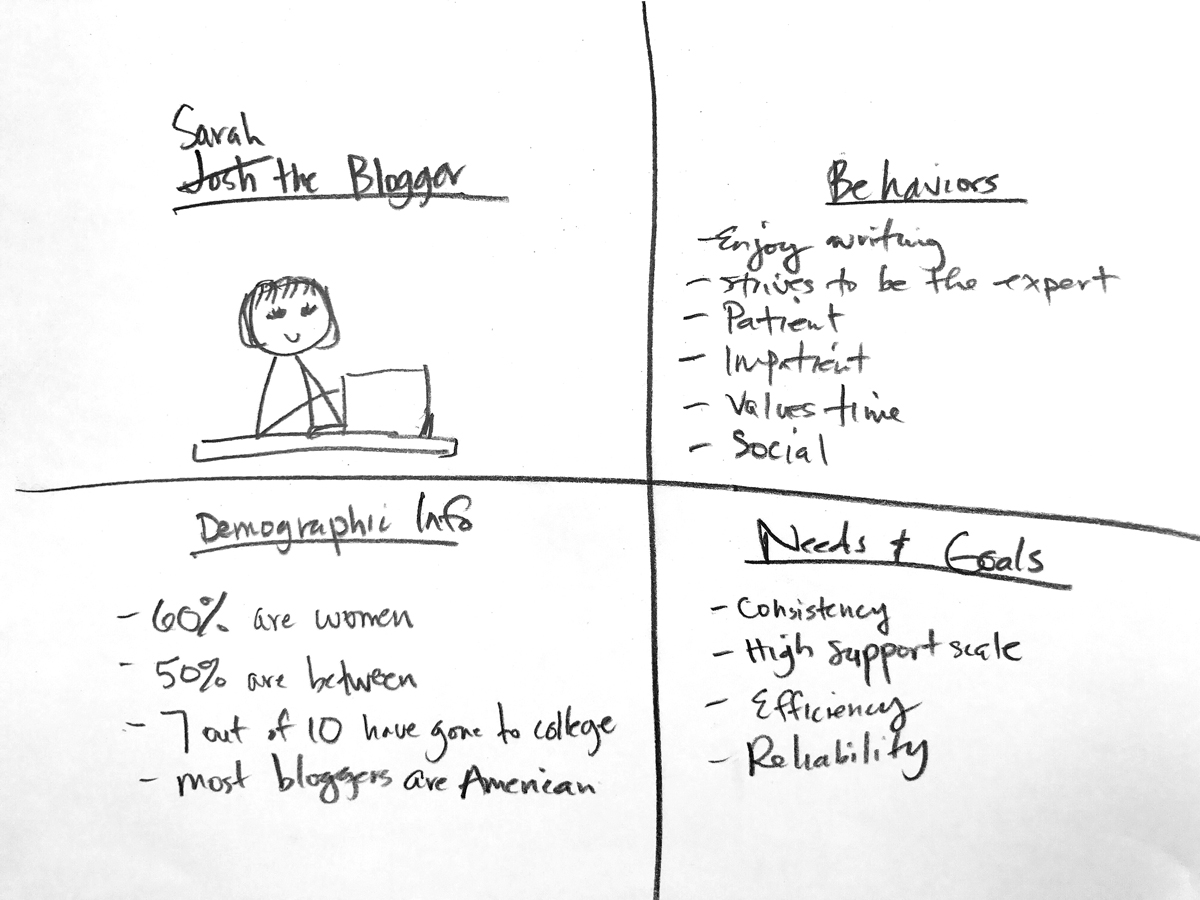 Sarah
Josh the Blogger
Behaviors
- Enjoy writing
- strives to be the expert
- Patient
- Impatient
- Values time
- Social
Demographic Info
- 60% are women
- 50% are between
- 7 out of 10 have gone to college
- most bloggers are American
Needs + Goals
- Consistency
- High support scale
- Efficiency
- Reliability